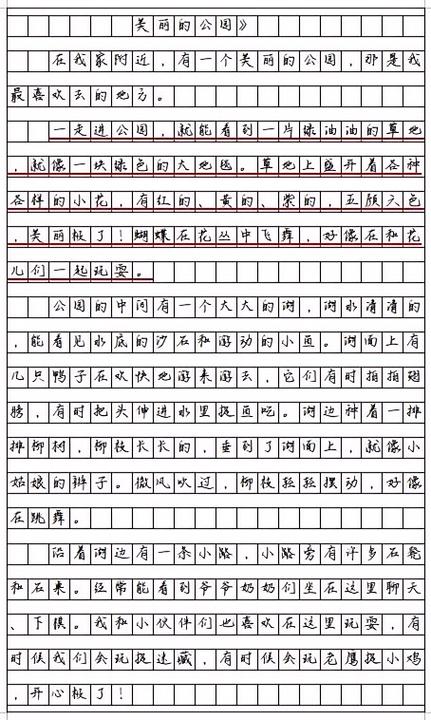 美丽的公园》
在我家附近，有一个美丽的公园，那是我
最喜欢去的地方。
一走进公园，就能看到一片绿油油的草地
，就像一块绿色的大地毯。草地上盛开着各种
各样的小花，有红的、黄的、紫的，五颜六色
，美丽极了！蝴蝶在花丛中飞舞，好像在和花
儿们一起玩耍。
公园的中间有一个大大的湖，湖水清清的
，能看见水底的沙石和游动的小鱼。湖面上有
几只鸭子在欢快地游来游去，它们有时拍拍翅
膀，有时把头伸进水里捉鱼吃。湖边种着一排
排柳树，柳枝长长的，垂到了湖面上，就像小
姑娘的辫子。微风吹过，柳枝轻轻摆动，好像
在跳舞。
沿着湖边有一条小路，小路旁有许多石凳
和石桌。经常能看到爷爷奶奶们坐在这里聊天
、下棋。我和小伙伴们也喜欢在这里玩耍，有
时候我们会玩捉迷藏，有时候会玩老鹰捉小鸡
，开心极了！